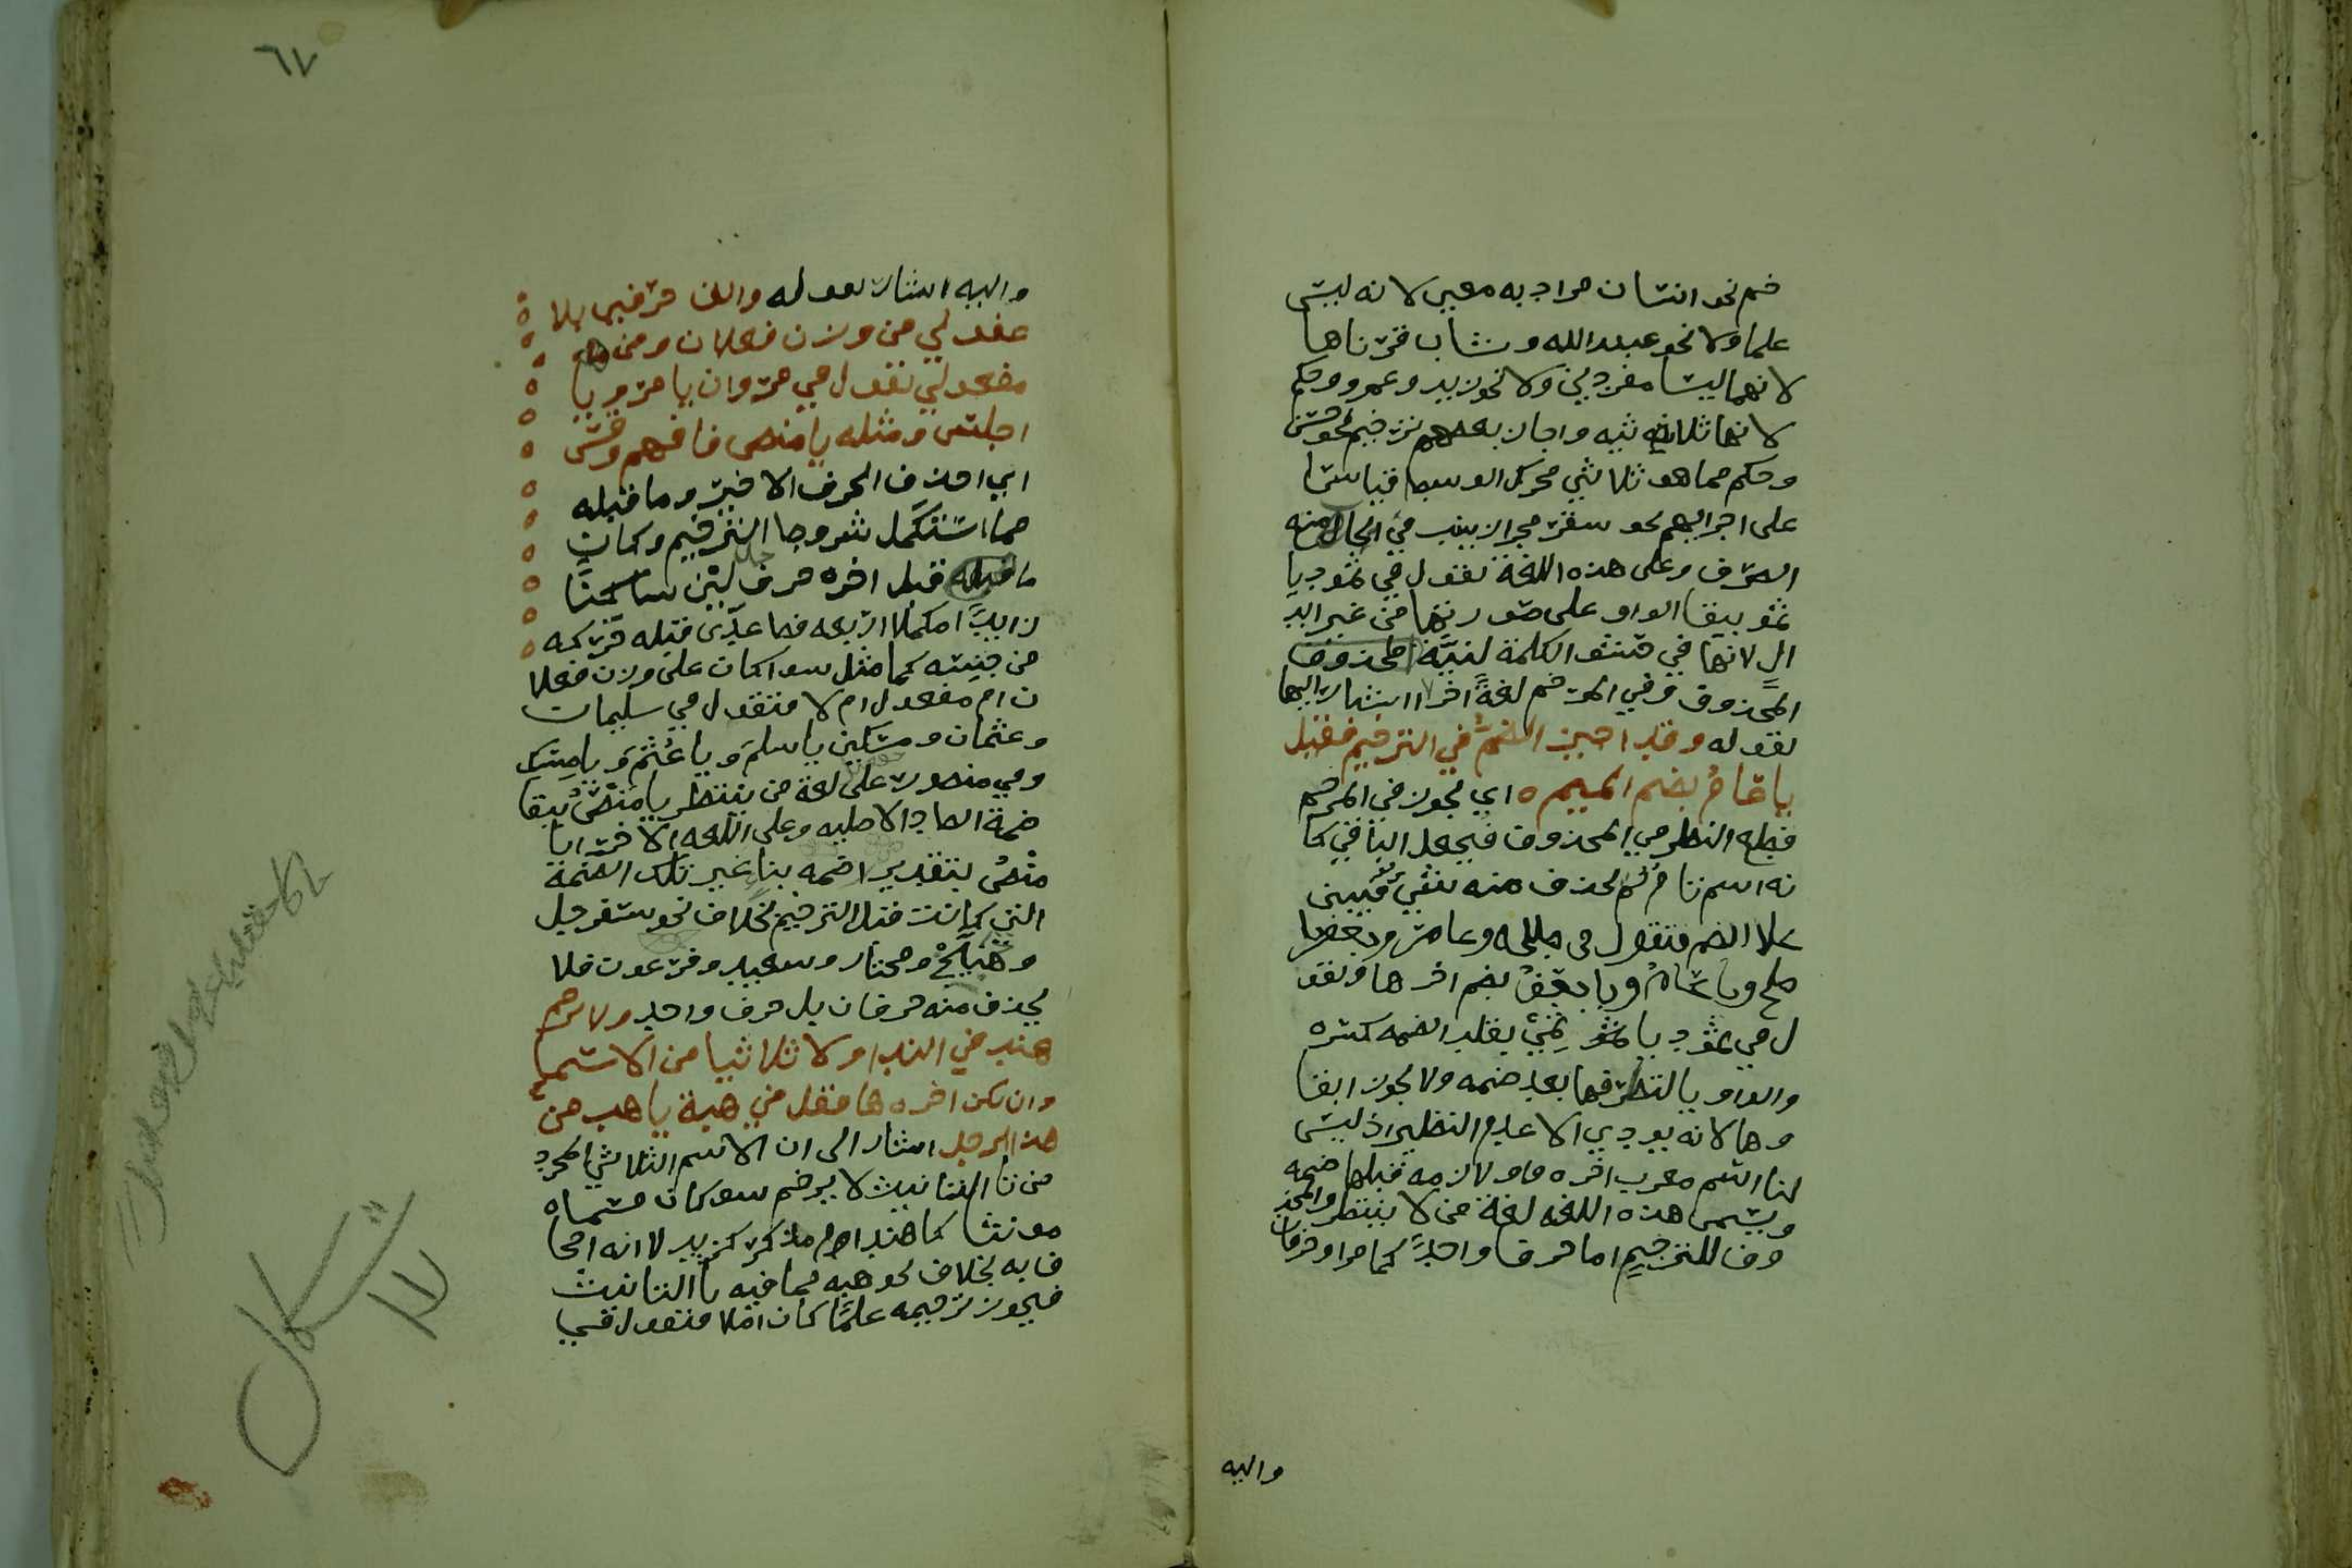 خم نحو انسان مراد به معين لانه ليس
علما ولا نحو عبد الله وشاب قرناها
لانهما ليسا مفردين ولا نحو زيد وعمرو وحكم
لانها ثلاثيه واجاز بعضهم ترخيم نحو
وحكم مما هو ثلاثي محرك الوسط قياسا
على اجرايهم نحو سقر مجرا زينب في منه
الصرف وعلى هذه اللغة نقول في ثمود يا
ثمو ببقا الواو على صورتها من غير ابد
ال لانها في حشو الكلمة لنية
المحذوف وفي المرخم لغة اخرا اشار اليها
بقوله وقد اجيز الضم في الترخيم فقيل
يا عام بضم الميم ه اي يجوز في المرخم
قطع النظر عن المحذوف فيجعل الباقي كا
نه اسم تام لم يحذف منه شي فيبنى
علا الضم فتقول في وعامر وجعفر يا
ويا عام ويا جعف بضم اخرها وتقو
ل في ثمود يا ثمي بقلب الضمه كسره
والواو يا لتطرفها بعد ضمه ولا يجوز ابقا
وها لانه يودي الا عدم النظير اذ ليس
لنا اسم معرب اخره واو لازمه قبلها ضمه
ويسمى هذه اللغه لغة من لا ينتظر والمحذ
وف للترخيم اما حرفا واحدا كما مر او حرفان
واليه
٦٧
واليه اشار بقوله والق حرفين بلا
غفول من وزن فعلان ومن
مفعول تقول في مروان يا مرو يا
اجلس ومثله يا منص فافهم وقس
اي احذف الحرف الاخير وما قبله
مما استكمل شروط الترخيم وكان
ما قبله قبل اخره حرف لين ساكنا
زايدا مكملا اربعه فصاعدا قبله حركه
من جنسه كما مثل سوا كان على وزن فعلا
ن ام مفعول ام لا فتقول في سليمان
وعثمان ومسكين يا سلم ويا عثم ويا مسك
وفي منصور على لغة من ينتظر يا منص ببقا
ضمة الصاد الاصليه وعلى اللغه الاخرا يا
منص بتقدير ضمه بنا غير تلك الضمة
التي كانت قبل الترخيم بخلاف نحو سفرجل
وهبيخ ومختار وسعيد وفرعون فلا
يحذف منه حرفان بل حرف واحد ولا ترخم
هند في الندا ولا ثلاثيا من الاسما
وان يكن اخره ها فقل في هبة يا هب من
هذا الرجل اشار الى ان الاسم الثلاثي المجرد
من تا التانيث لا يرخم سو كان مسماه
مونثا كما هند ام مذكر كزيد لانه اجحا
ف به بخلاف نحو هبه مما فيه تا التانيث
فيجوز ترخيمه علما كان ام لا فتقول في